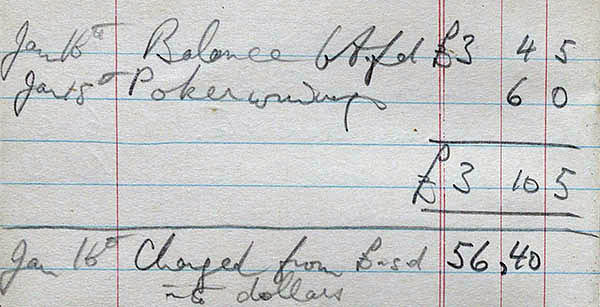 Jan 16th Balance b/fd £3 4 5
Jan 15th Poker winnings 6 0
£ 3 10 5
Jan 16th Changed from £-s-d 56,40
into dollars